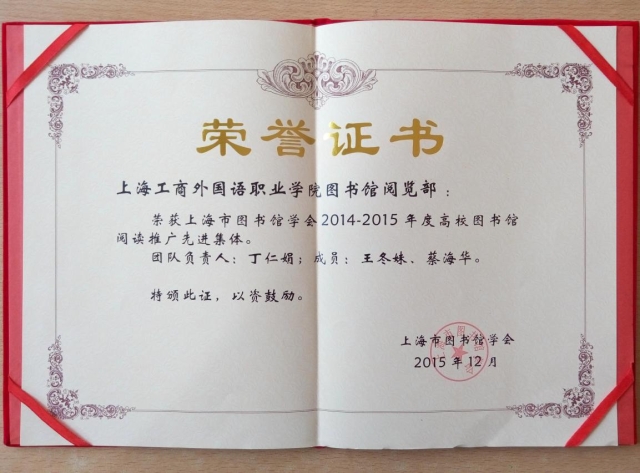 荣誉证书
上海工商外国语职业学院图书馆阅览部：
荣获上海市图书馆学会2014-2015年度高校图书馆
阅读推广先进集体。
团队负责人：丁仁娟；成员：王冬妹、蔡海华。
特颁此证，以资鼓励。
上海市图书馆学会
2015年12月